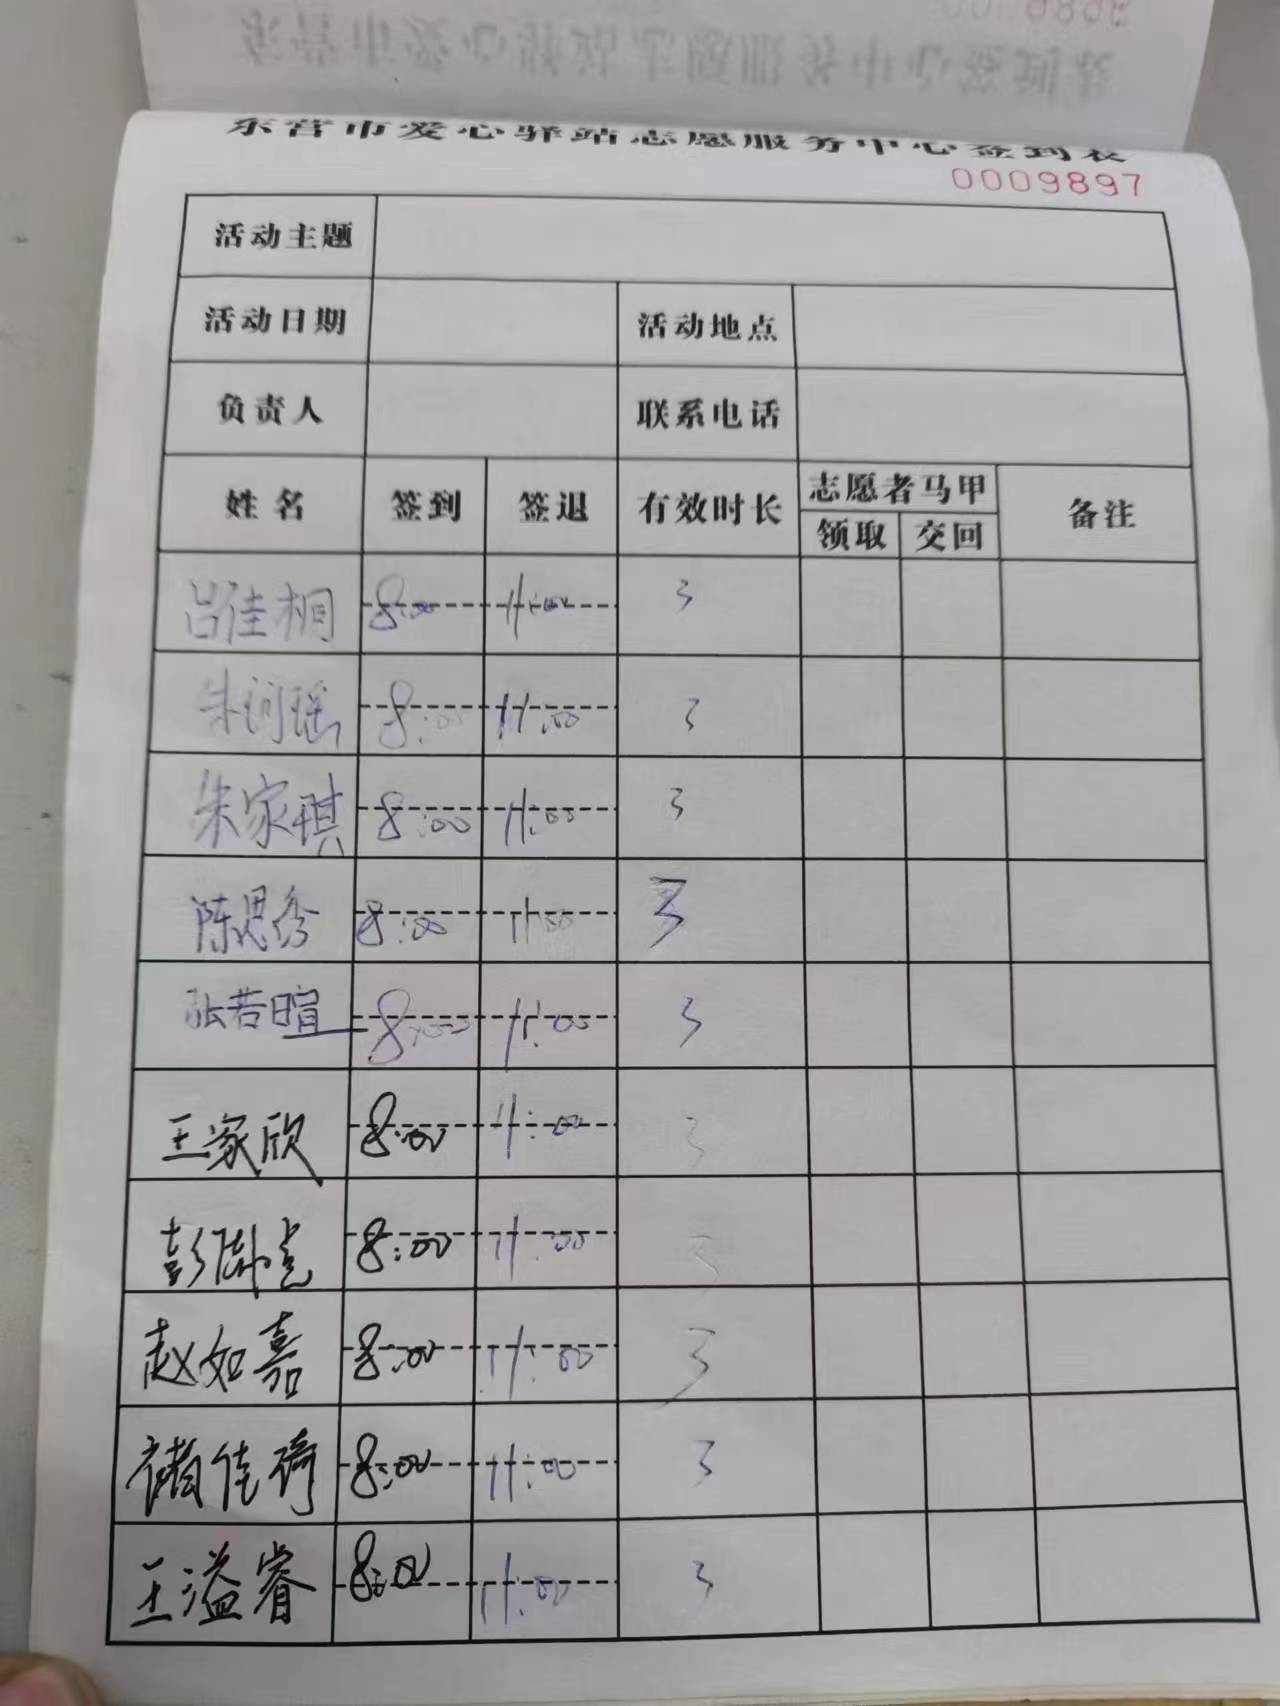 东营市爱心驿站志愿服务中心签到表
0009897
活动主题
活动日期 活动地点
负责人 联系电话
姓名 签到 签退 有效时长 志愿者马甲 备注
领取 交回
吕佳桐 8:00 11:00 3
8:00 11:00 3
朱家琪 8:00 11:00 3
陈思 8:00 11:00 3
张若暄 8:00 11:00 3
王家欣 8:00 11:00 3
彭 8:00 11:00 3
赵如嘉 8:00 11:00 3
褚佳琦 8:00 11:00 3
王溢睿 8:00 11:00 3